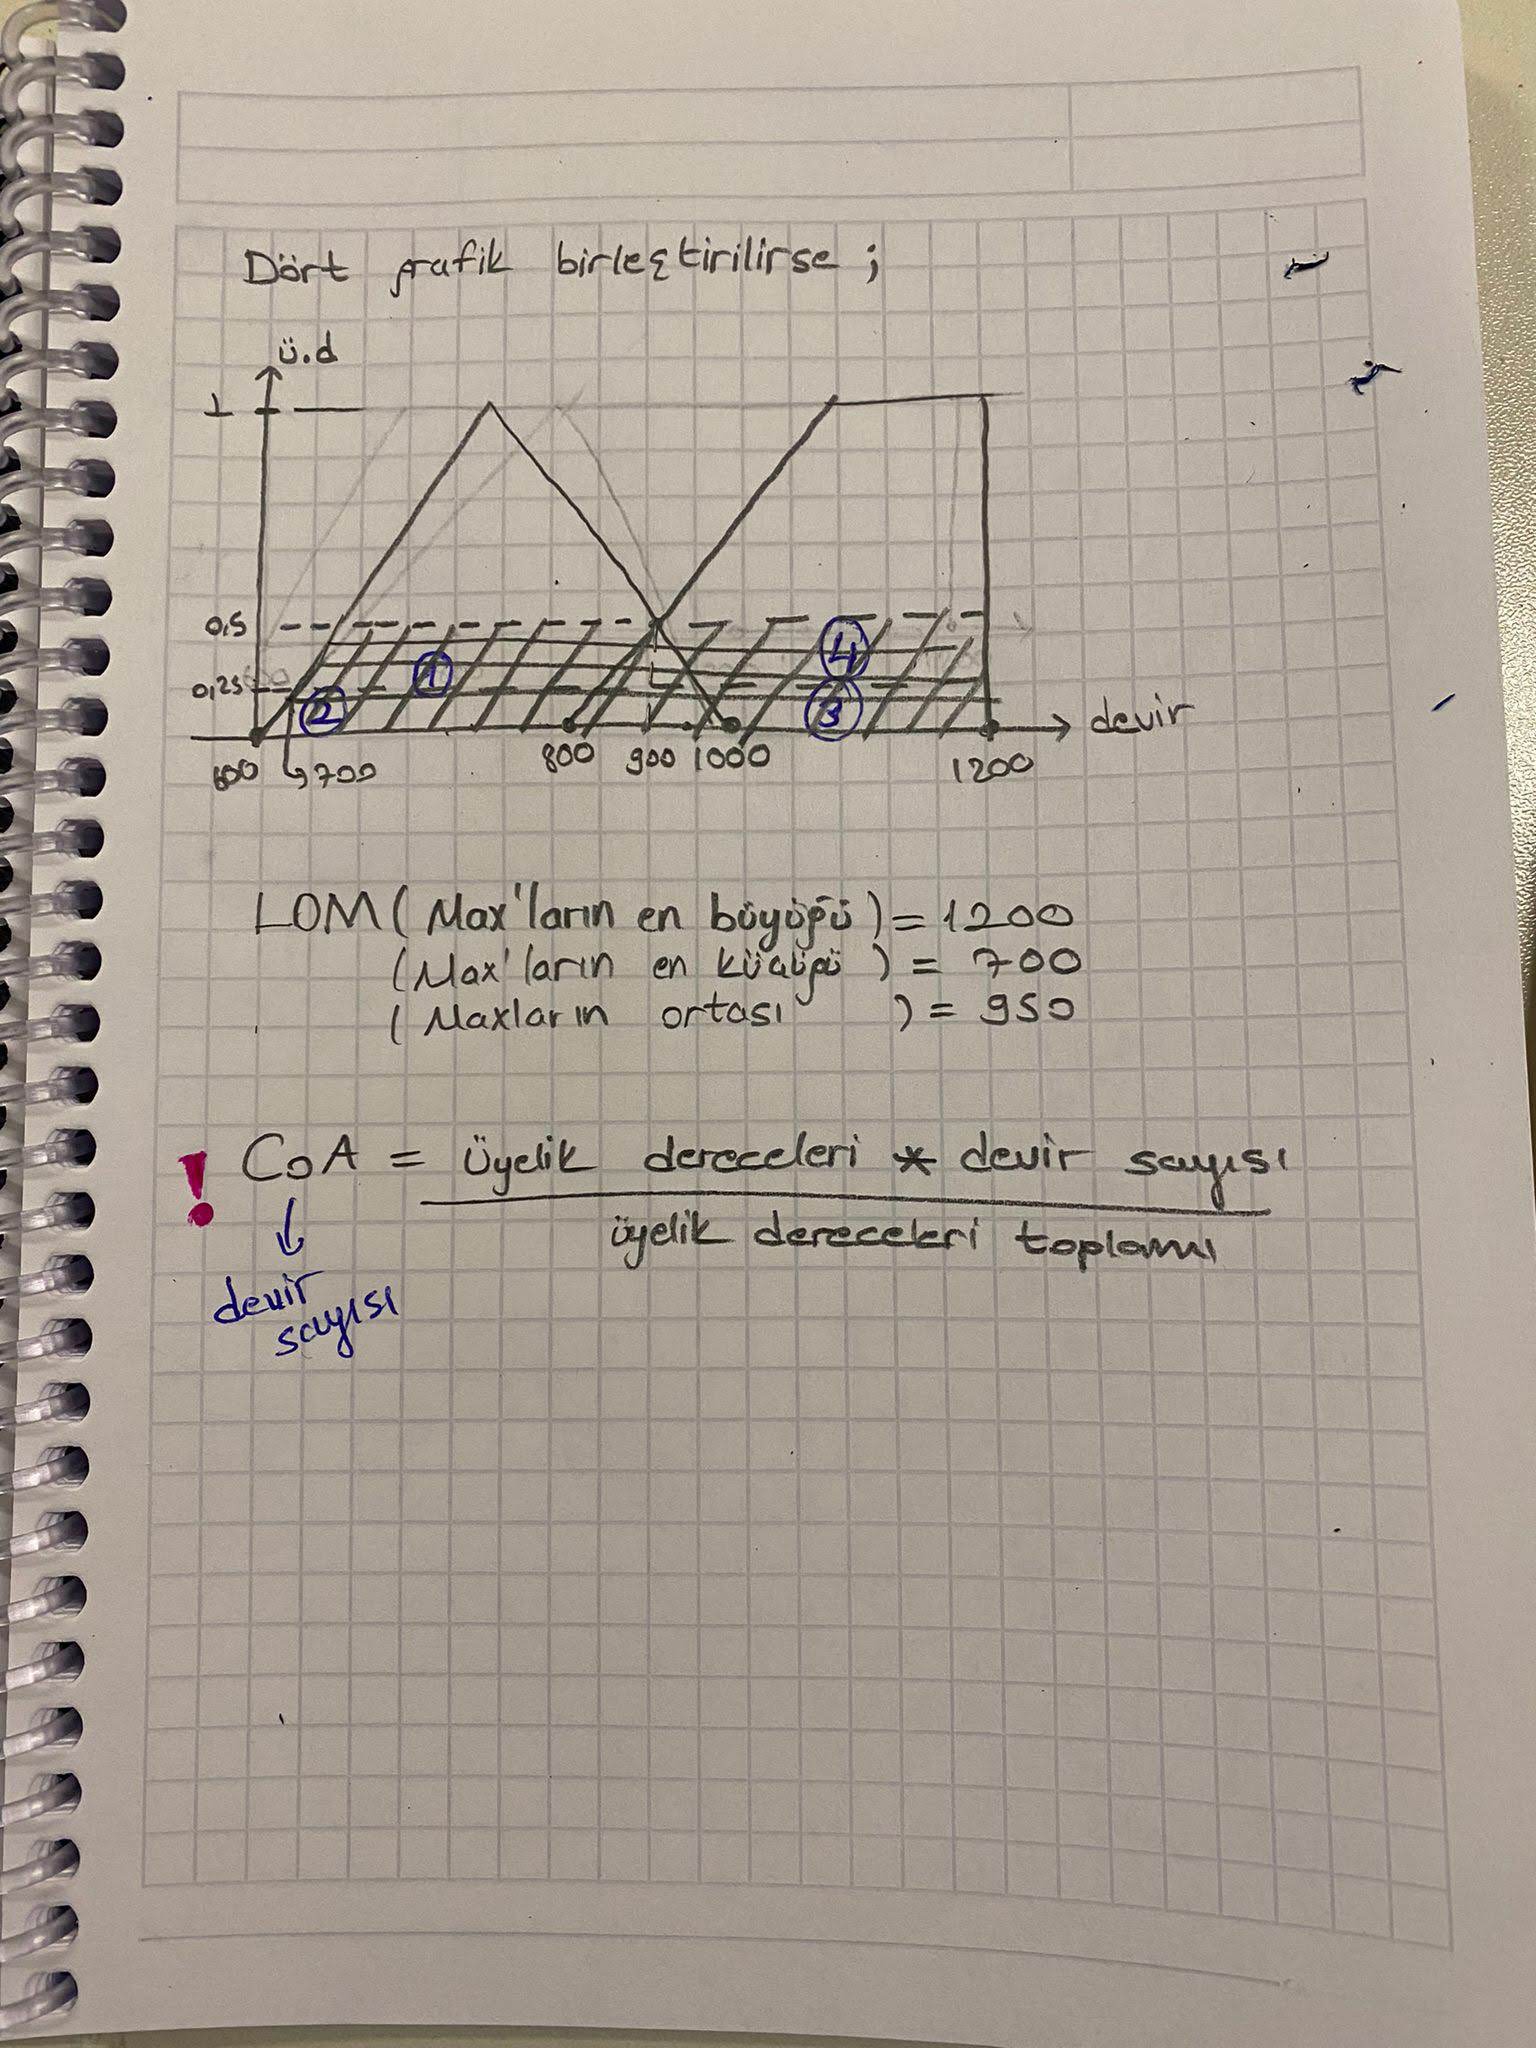 Dört grafik birleştirilirse ;
ü.d
1
0,5
0,25
1
2
4
3
devir
600
700
800
900
1000
1200
LOM ( Max'ların en büyüğü ) = 1200
( Max'ların en küçüğü ) = 700
( Maxların ortası ) = 950
! CoA = üyelik dereceleri * devir sayısı
üyelik dereceleri toplamı
devir
sayısı